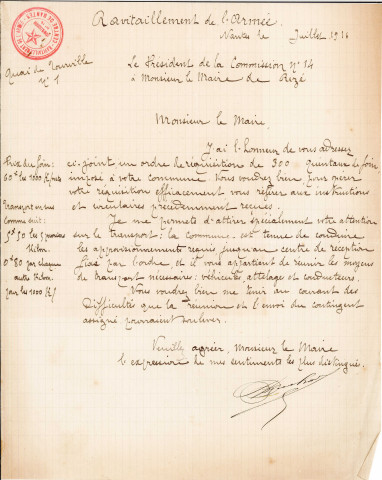 Ravitaillement de l'Armée.
Nantes le Juillet 1916
Quai de Tourville
N° 1
Le Président de la Commission N° 14
à Monsieur le Maire de Rezé
Monsieur le Maire
J'ai l'honneur de vous adresser
ci-joint un ordre de réquisition de 300 quintaux de foin
imposé à votre commune. Vous voudrez bien pour opérer
votre réquisition efficacement vous référer aux instructions
et circulaires précédemment reçues.
Je me permets d'attirer spécialement votre attention
sur le transport: la commune est tenue de conduire
les approvisionnements requis jusqu'au centre de réception
fixé par l'ordre et il vous appartient de réunir les moyens
de transport nécessaires: véhicules, attelage et conducteurs.
Vous voudrez bien me tenir au courant des
difficultés que la réunion et l'envoi du contingent
assigné pourraient soulever.
Veuillez agréer, Monsieur le Maire
l'expression de mes sentiments les plus distingués.
Prix du foin:
60 les 1000 K
Transport en sus
comme suit:
5f 50 les 5 premiers
Kilom.
0f 80 par chaque
autre Kilom.
par les 1000 K